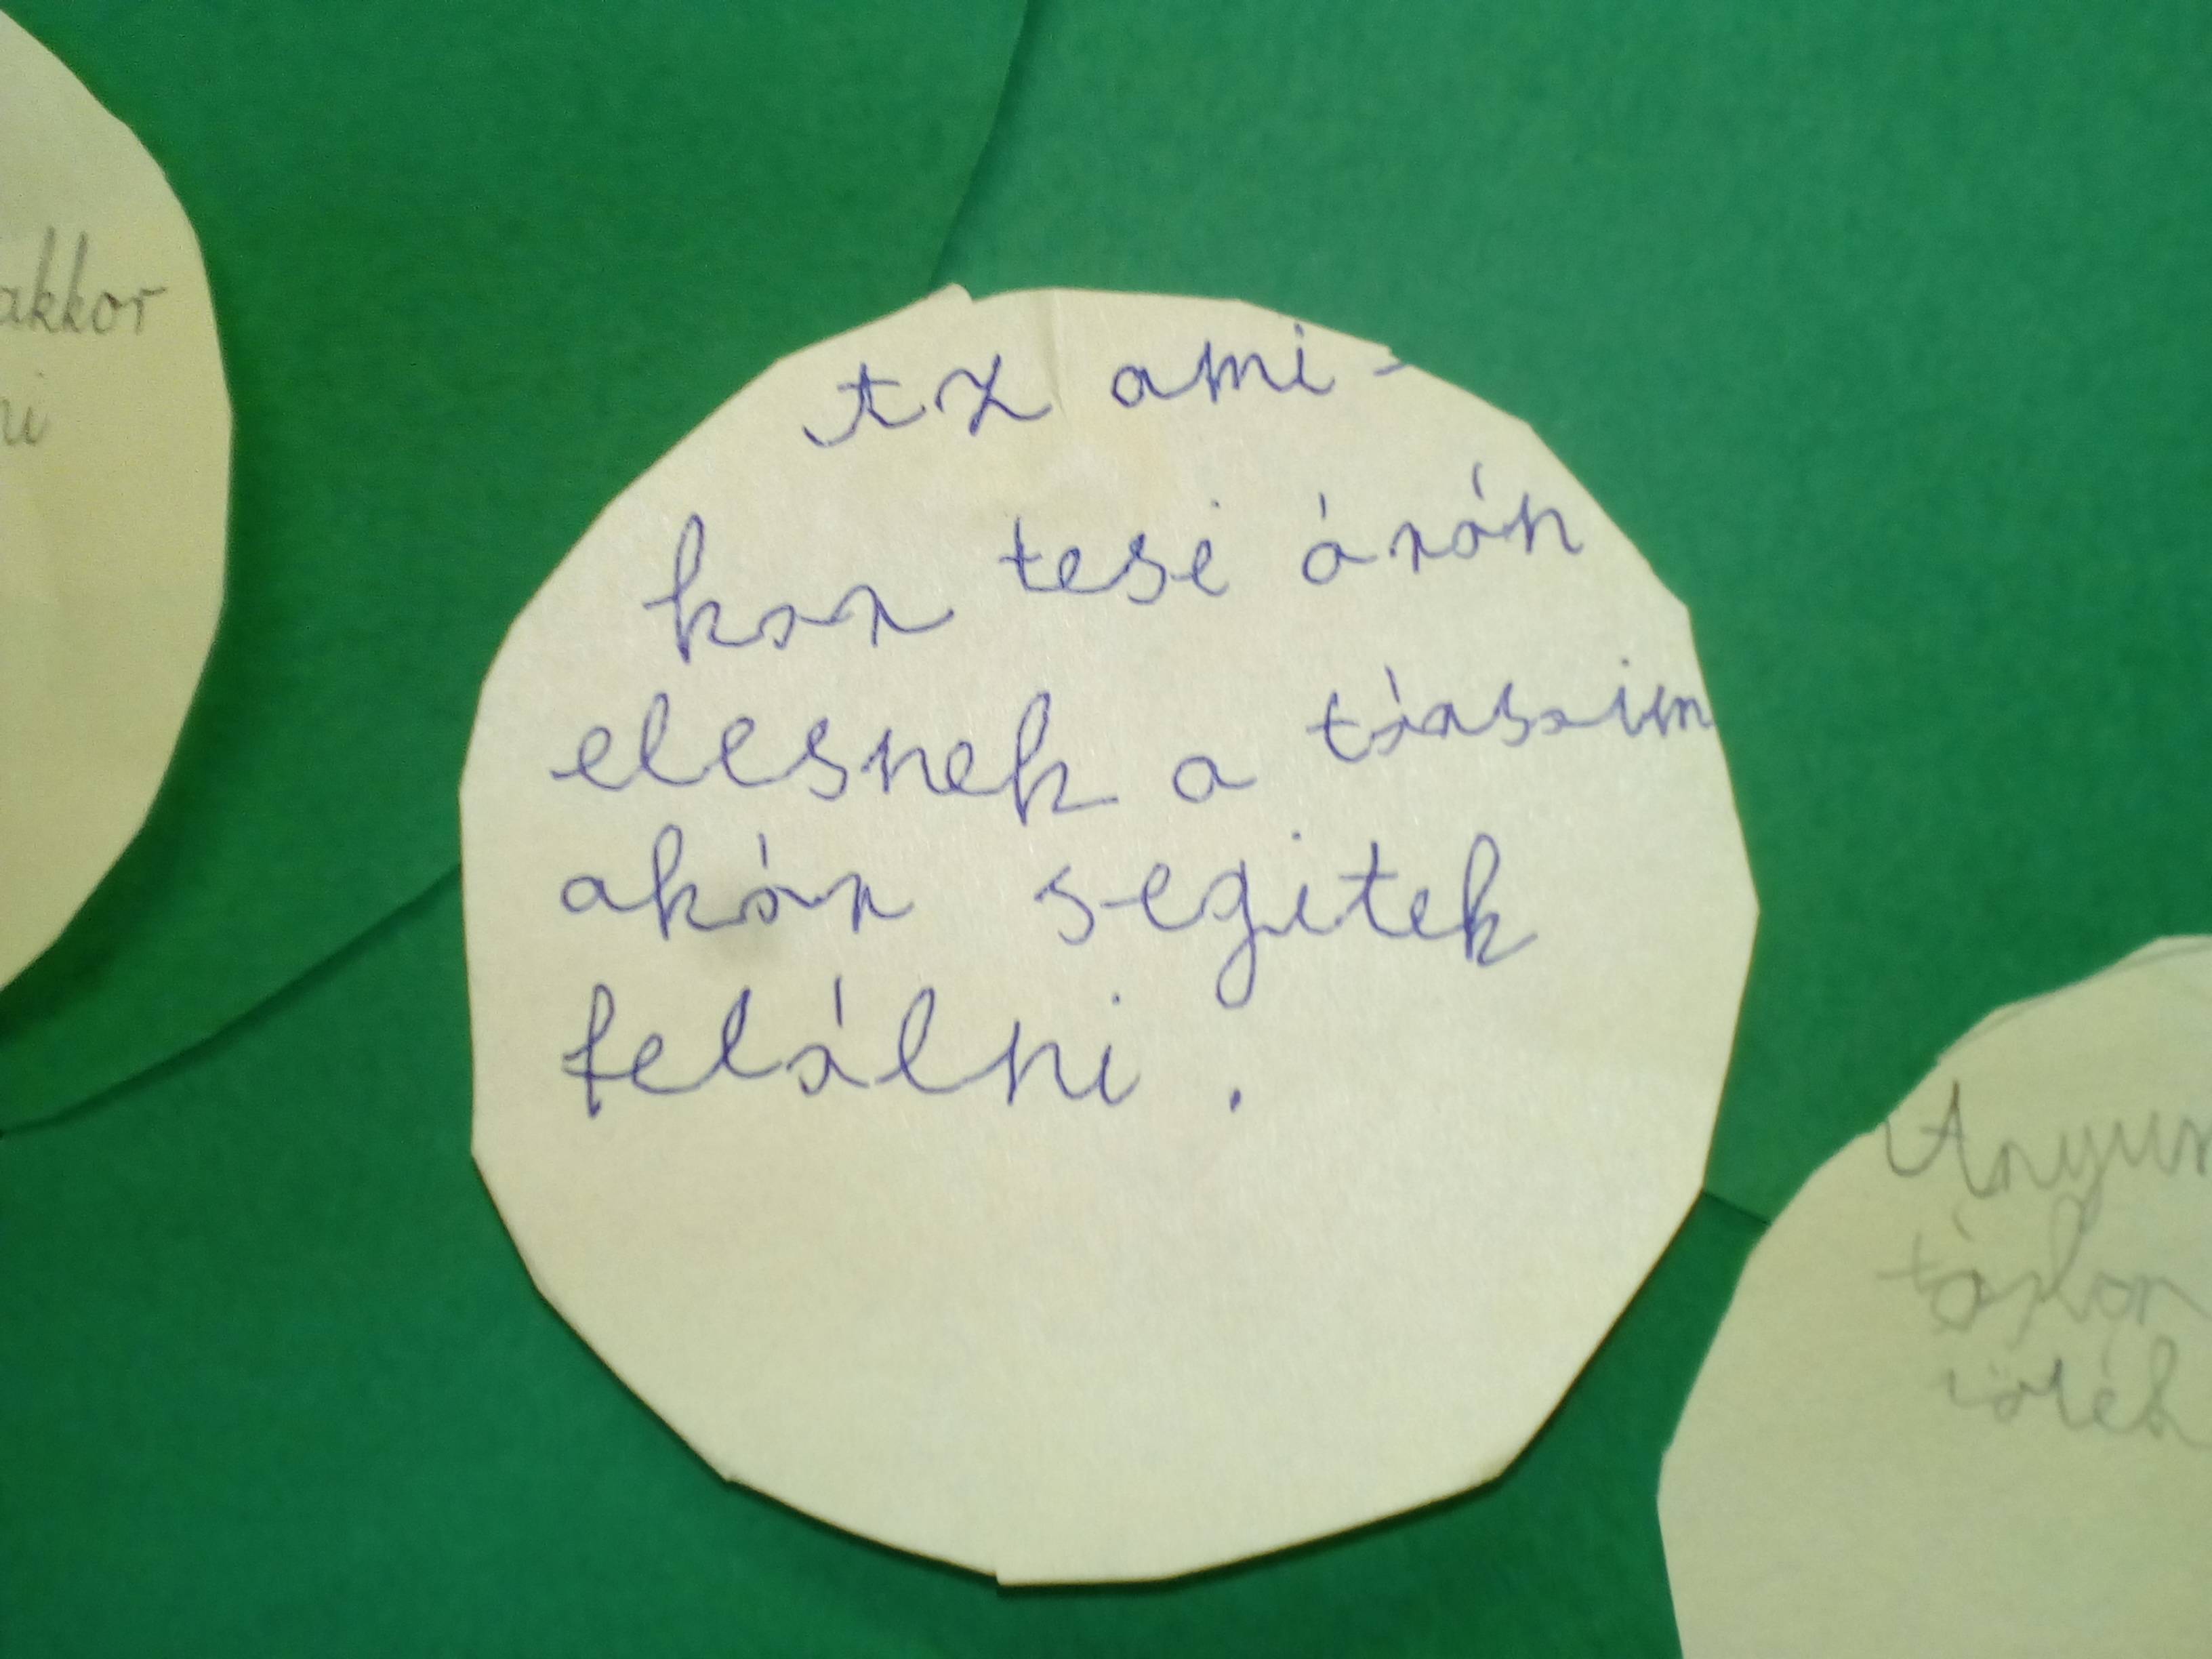 akkor
ni
Az ami-
kor tesi órán
elesnek a társaim
akór segitek
felálni.
Anyum